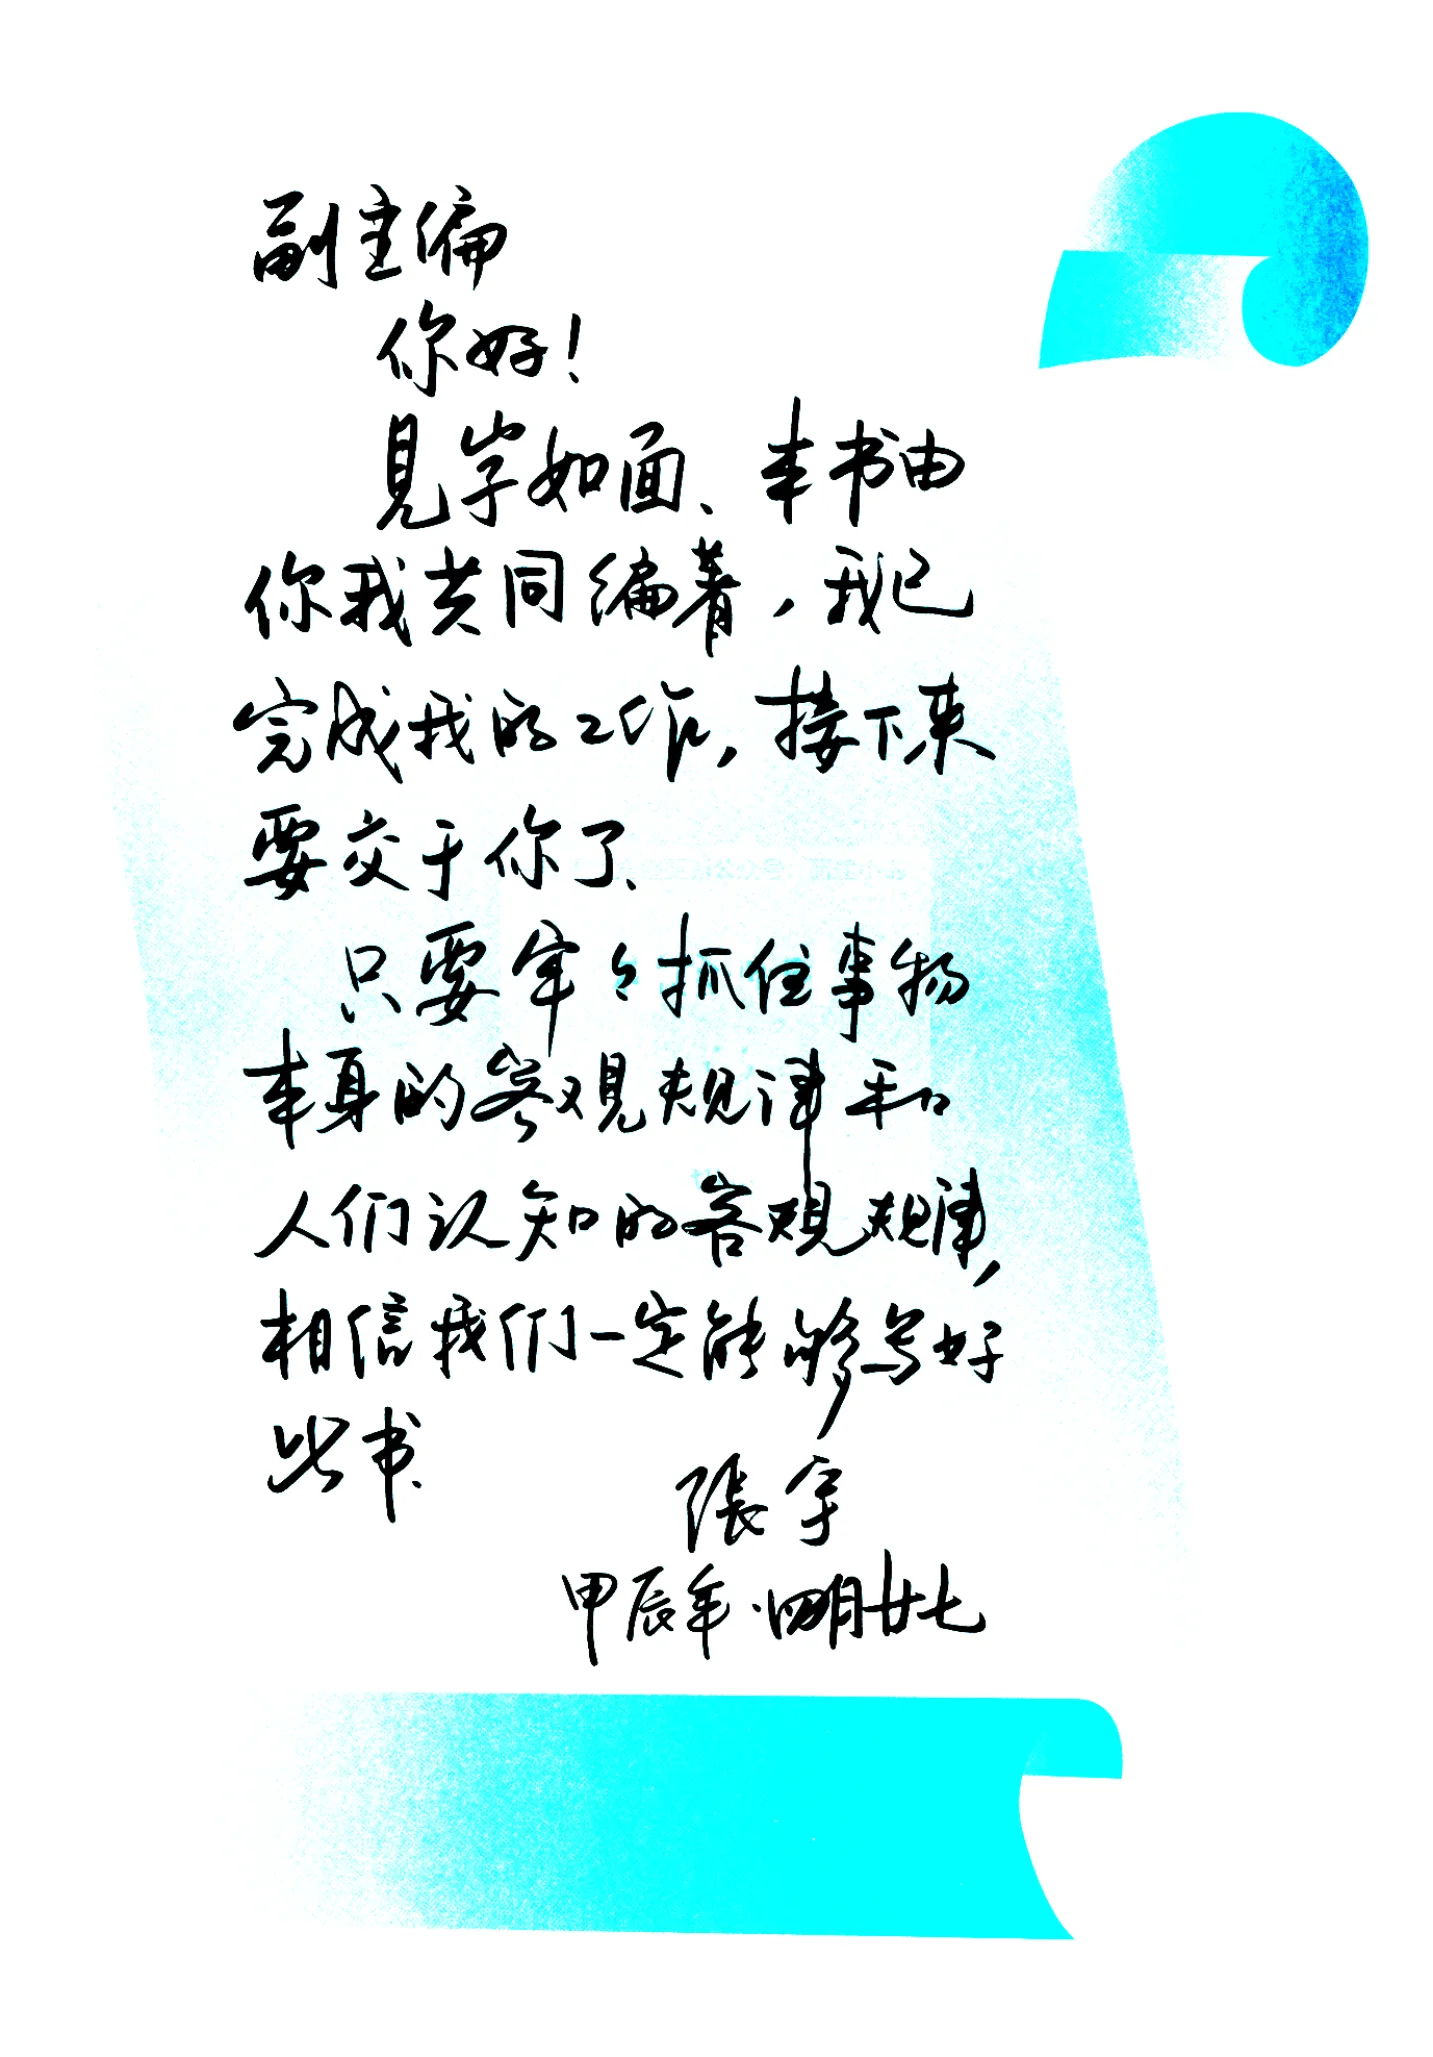 副主编
你好！
見字如面、本书由
你我共同编著，我已
完成我的工作，接下来
要交于你了、
只要牢々抓住事物
本身的客观规律和
人们认知的客观规律，
相信我们一定能够写好
此书、
張宇
甲辰年·四月廿七